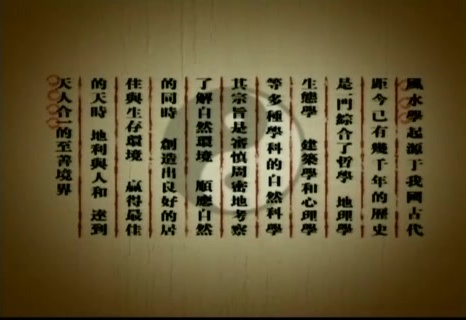 風水學起源于我國古代
距今已有幾千年的歷史
是一門綜合了哲學 地理學
生態學 建築學和心理學
等多種學科的自然科學
其宗旨是審慎周密地考察
了解自然環境 順應自然
的同時 創造出良好的居
住與生存環境 贏得最佳
的天時 地利與人和 達到
天人合一的至善境界